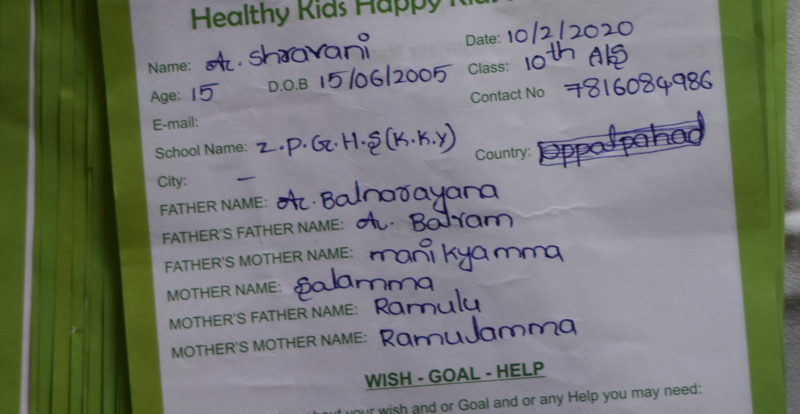 Healthy Kids Happy Kids
Name: A. Shravani
Date: 10/2/2020
Age: 15 D.O.B 15/06/2005
Class: 10th A/S
Contact No 7816084986
E-mail:
School Name: Z.P.G.H.S(K.K.Y)
Country:
City: –
FATHER NAME: A. Balnarayana
FATHER'S FATHER NAME: A. Balram
FATHER'S MOTHER NAME: manikyamma
MOTHER NAME: Salamma
MOTHER'S FATHER NAME: Ramulu
MOTHER'S MOTHER NAME: Ramulamma
WISH - GOAL - HELP
your wish and or Goal and or any Help you may need: